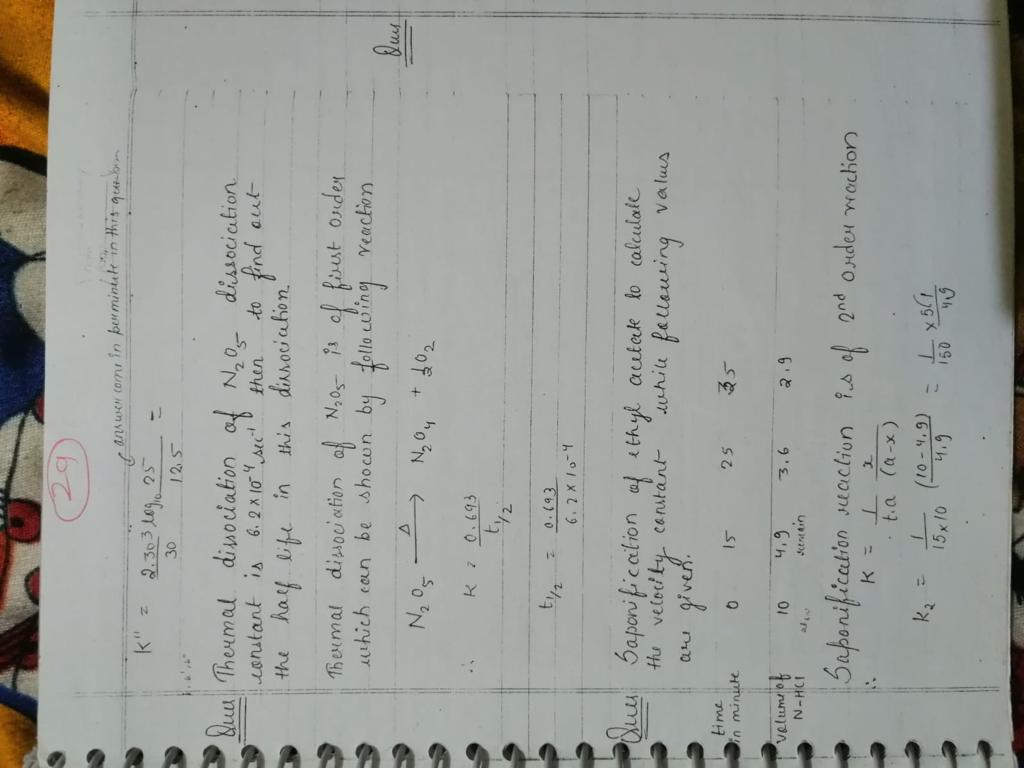 29
answer come in perminute in this question
K" = 2.303/30 log10 25/12.5 =
Ques Thermal dissociation of N2O5 dissociation
constant is 6.2×10-4 sec-1 then to find out
the half life in this dissociation.
Thermal dissociation of N2O5 is of first order
which can be shown by following reaction
N2O5 —Δ→ N2O4 + 1/2O2
∴ K = 0.693/t1/2
t1/2 = 0.693/6.2×10-4
Ques Saponification of ethyl acetate to calculate
the velocity contant while following values
are given.
time in minute 0 15 25 35
volume of N-HCl 10 4.9 3.6 2.9
remain
Saponification reaction is of 2nd order reaction
∴ K = 1/t.a x/(a-x)
K2 = 1/15×10 (10-4.9)/4.9 = 1/150 × 5.1/4.9
Ques